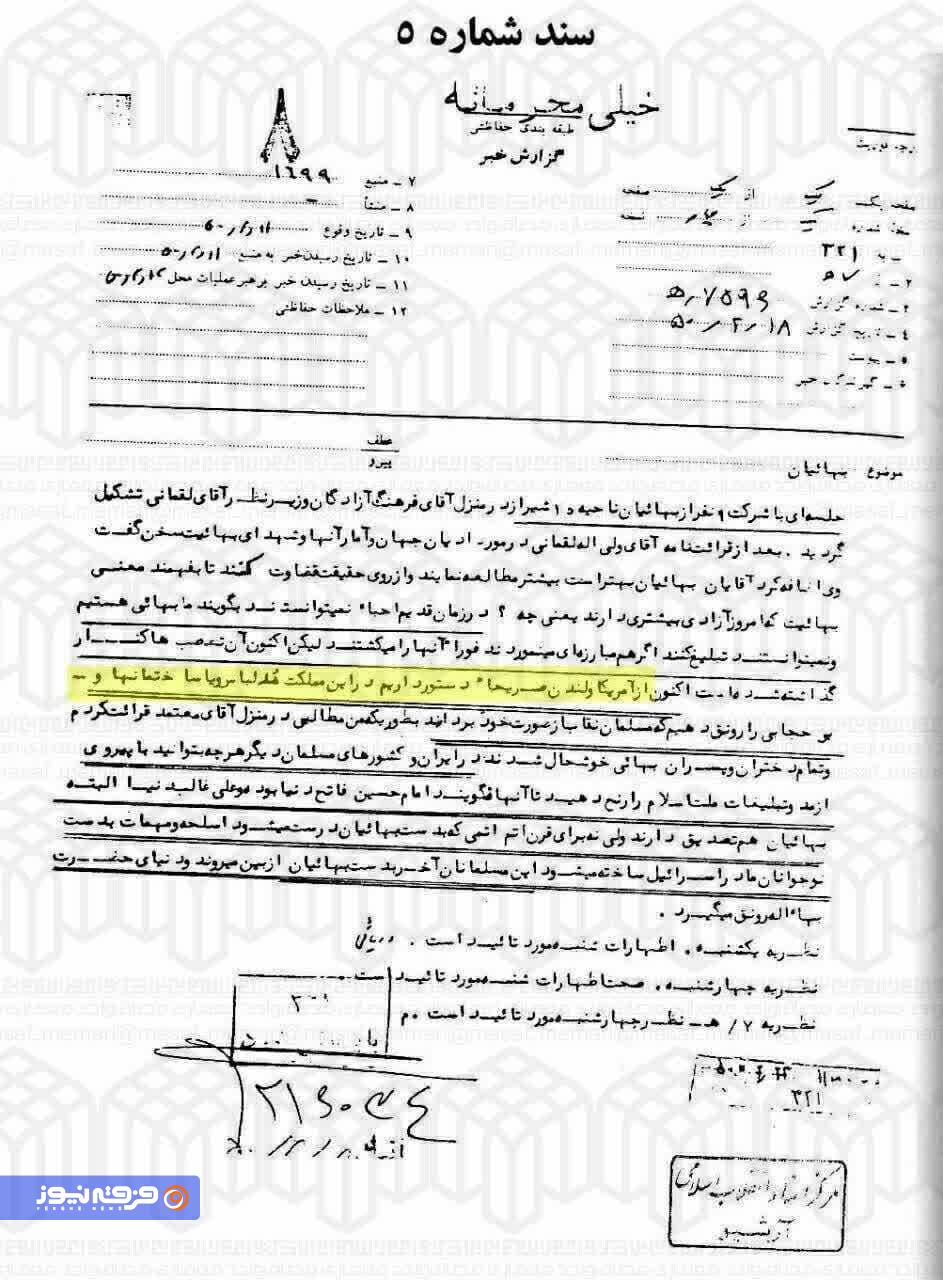 سند شماره ۵
خیلی محرمانه
طبقه بندی حفاظتی
گزارش خبر
۷ ـ منبع ۱۶۹۹
۸ ـ منشأ
۹ ـ تاریخ وقوع
۱۰ ـ تاریخ رسیدن خبر به منبع
۱۱ ـ تاریخ رسیدن خبر برهبر عملیات محل
۱۲ ـ ملاحظات حفاظتی
یک از یک صفحه
از نسخه
۱ ـ به ۳۲۱
۲ ـ از ه۷
۳ ـ شماره گزارش
۴ ـ تاریخ گزارش ۵۰/۲/۱۸
۵ ـ پیوست
۶ ـ گیرندگان خبر
عطف
پیرو
موضوع بهائیان
جلسه‌ای با شرکت ۹ نفر از بهائیان ناحیه ۱۵ شیراز در منزل آقای فرهنگ آزادگان وزیر نظر آقای لقمانی تشکیل
گردید . بعد از قرائت نامه آقای ولی اله لقمانی در مورد ادیان جهان و آمار آنها و شهدای بهائیت سخن گفت
وی اضافه کرد آقایان بهائیان بهتر است بیشتر مطالعه نمایند و از روی حقیقت قضاوت کنند تا بفهمند معنسی
بهائیت که امروز آزادی بیشتری دارند یعنی چه ؟ در زمان قدیم احباء نمیتوانستند بگویند ما بهائی هستیم
و نمیتوانستند تبلیغ کنند اگر هم مبارزه‌ای مینمودند فوراً آنها را میکشتند لیکن اکنون آن تعصب ها کنار
گذاشته شده است اکنون از آمریکا و لندن صریحاً دستور داریم در این مملکت مد لباس و یا ساختمانها و
بی حجابی را رونق دهیم که مسلمان نقاب از صورت خود بردارند بطوریکه من مطالبی در منزل آقای معتمد قرائت کردم
و تمام دختران و پسران بهائی خوشحال شدند در ایران و کشورهای مسلمان دیگر هر چه بتوانید با پیروی
از مد و تبلیغات ملت اسلام را رنج دهید تا آنها نگویند امام حسین فاتح دنیا بوده و علی غالب دنیا البته
بهائیان هم تصدیق دارند ولی نه برای قرن اتم اتمی که بدست بهائیان درست میشود اسلحه و مهمات بدست
نوجوانان ما در اسرائیل ساخته میشود این مسلمانان آخر بدست بهائیان از بین میروند و دنیای حضرت
بهاءاله رونق میگیرد .
نظریه یکشنبه . اظهارات شنبه مورد تائید است .
نظریه چهارشنبه . صحت اظهارات شنبه مورد تائید است .
نظریه ۷/ هـ نظر چهارشنبه مورد تائید است
۳۲۱
مرکز اسناد انقلاب اسلامی
آرشیو
فرقه نیوز
FERGHE NEWS